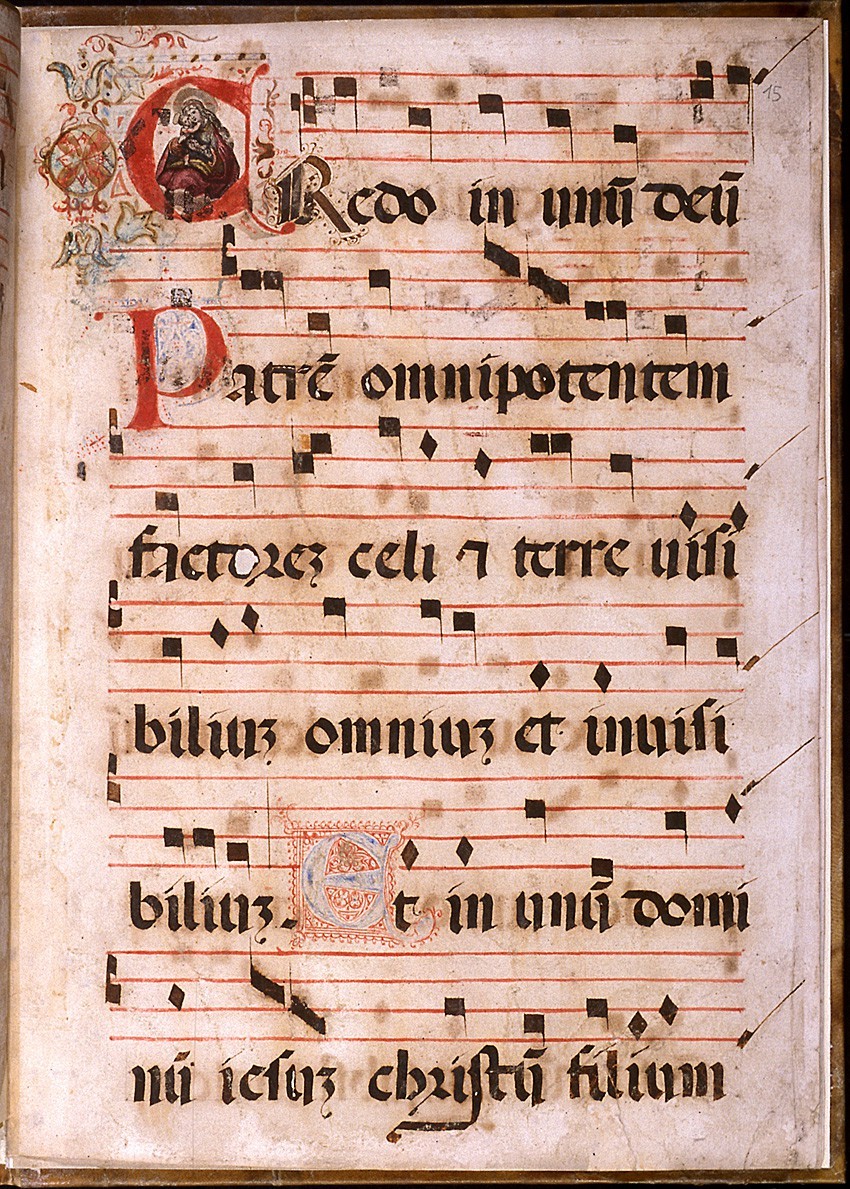 15
CRedo in unū deū
Patrē omnipotentem
factoreʒ celi ⁊ terre uisi
biliuʒ omniuʒ et inuisi
biliuʒ. Et in unū domi
nū iesuʒ christū filium